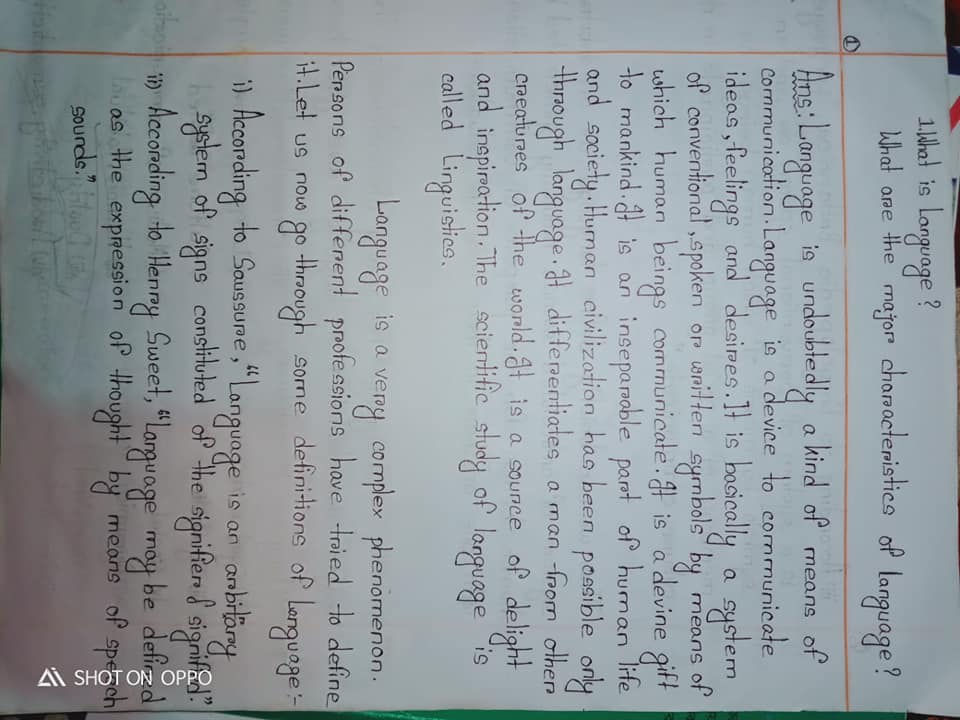 ①
1. What is Language?
What are the major characteristics of language?
Ans: Language is undoubtedly a kind of means of
communication. Language is a device to communicate
ideas, feelings and desires. It is basically a system
of conventional, spoken or written symbols by means of
which human beings communicate. It is a devine gift
to mankind. It is an inseparable part of human life
and society. Human civilization has been possible only
through language. It differentiates a man from other
creatures of the world. It is a source of delight
and inspiration. The scientific study of language is
called Linguistics.
Language is a very complex phenomenon.
Persons of different professions have tried to define
it. Let us now go through some definitions of Language:-
i) According to Saussure, "Language is an arbitary
system of signs constituted of the signifier & signified."
ii) According to Henry Sweet, "Language may be defined
as the expression of thought by means of speech
sounds."
SHOT ON OPPO